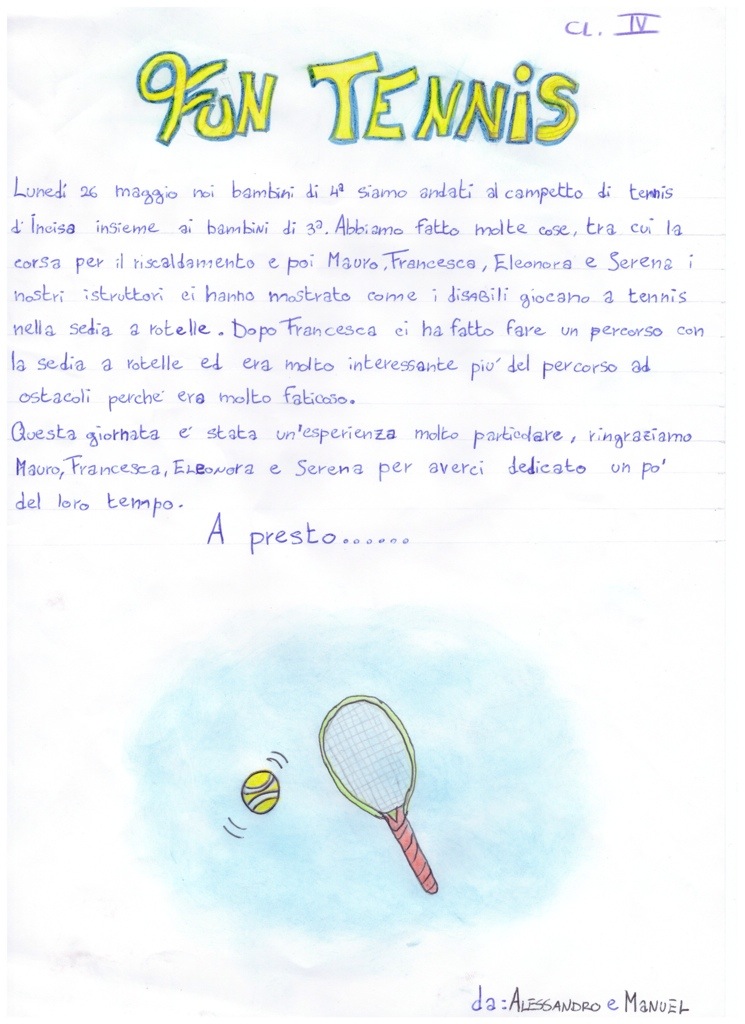 CL. IV
FUN TENNIS
Lunedí 26 maggio noi bambini di 4ª siamo andati al campetto di tennis
d'Incisa insieme ai bambini di 3ª. Abbiamo fatto molte cose, tra cui la
corsa per il riscaldamento e poi Mauro, Francesca, Eleonora e Serena i
nostri istruttori ci hanno mostrato come i disabili giocano a tennis
nella sedia a rotelle. Dopo Francesca ci ha fatto fare un percorso con
la sedia a rotelle ed era molto interessante piu' del percorso ad
ostacoli perche' era molto faticoso.
Questa giornata e' stata un'esperienza molto particolare, ringraziamo
Mauro, Francesca, Eleonora e Serena per averci dedicato un po'
del loro tempo.
A presto......
da: ALESSANDRO e MANUEL